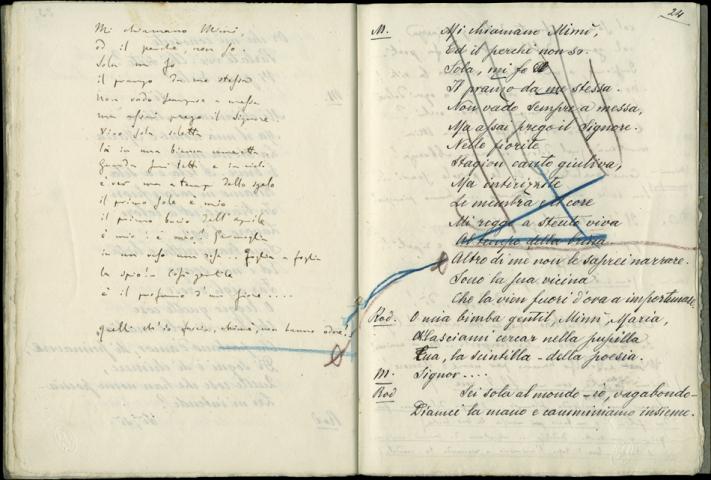 Mi chiamano Mimì
ed il perchè non so.
Sola mi fo
il pranzo da me stessa
Non vado sempre a messa
ma assai prego il Signore
Vivo sola soletta
là in una bianca cameretta
Guardo sui tetti e in cielo
è ver ma a tempo dello sgelo
il primo sole è mio
il primo bacio dell'aprile
è mio! è mio! Germoglia
in un vaso una rosa... Foglia a foglia
la spio! Così gentile
è il profumo d'un fiore....
Quelli ch'io faccio, ahimè, non hanno odore!
24
M. Mi chiamano Mimì,
Ed il perchè non so
Sola, mi fo
Il pranzo da me stessa.
Non vado sempre a messa,
Ma assai prego il Signore.
Nelle fiorite
Stagion canto giuliva,
Ma intirizzite
Le membra e il core
Mi reggo a stento viva
Al tempo della brina.
Altro di me non le saprei narrare.
Sono la sua vicina
Che la vien fuori d'ora a importunare.
Rod. O mia bimba gentil, Mimì, Maria,
Lasciami cercar nella pupilla
Tua, la scintilla - della poesia.
M. Signor....
Rod Sei sola al mondo - io, vagabondo -
Dammi la mano e camminiamo insieme.